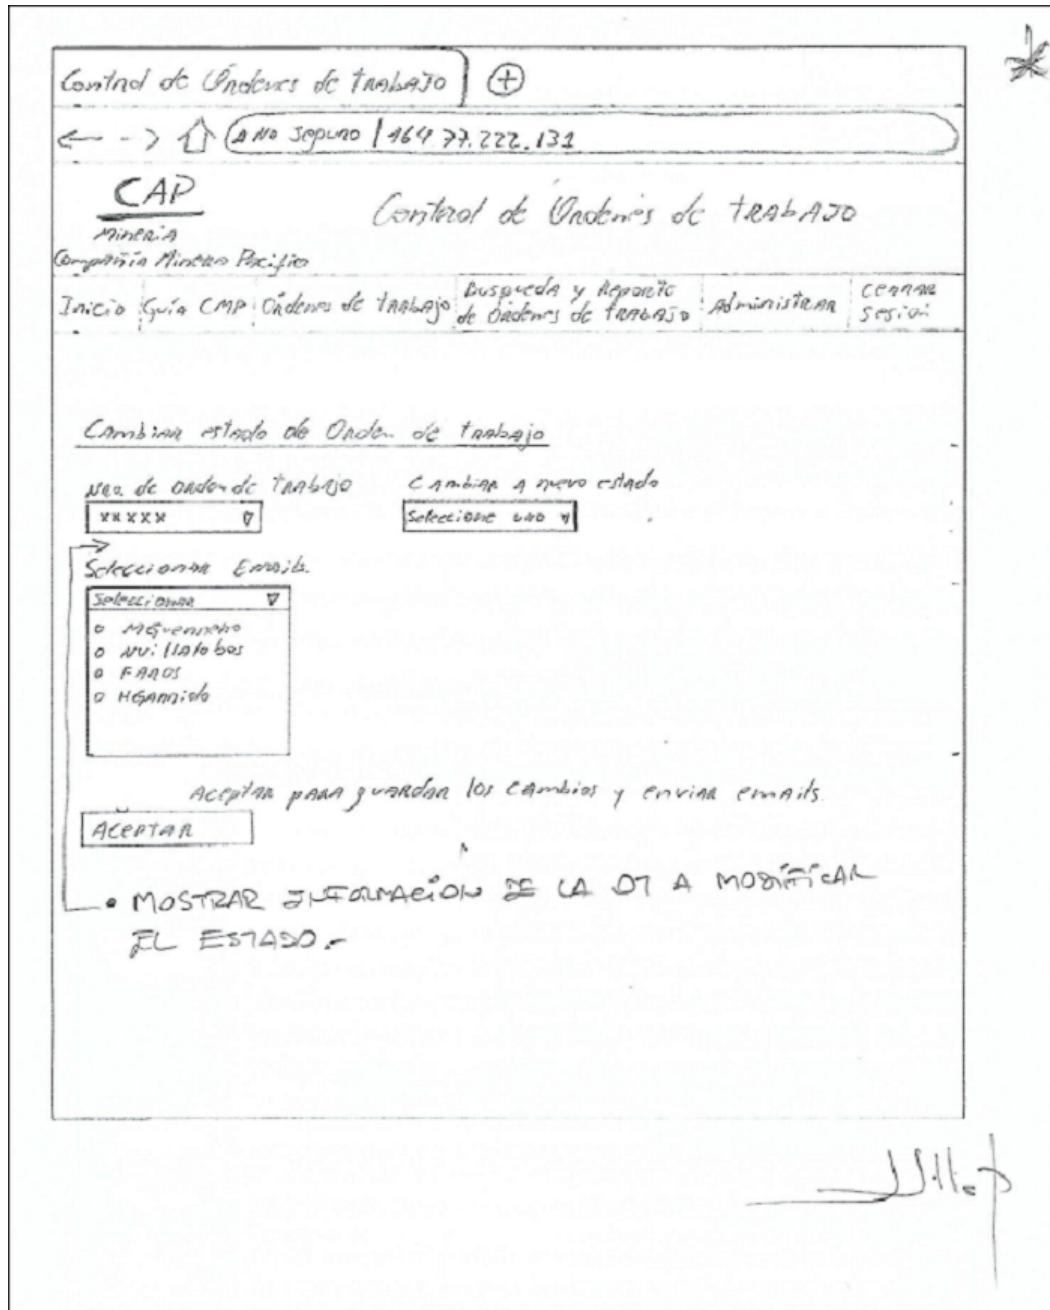 Control de Órdenes de trabajo
No seguro | 164.77.222.131
CAP
Minería
Compañía Minera Pacífico
Control de Órdenes de trabajo
Inicio Guía CMP Órdenes de trabajo Busqueda y Reporte de Órdenes de trabajo Administrar Cerrar sesión
Cambiar estado de Orden de trabajo
Nro. de orden de trabajo Cambiar a nuevo estado
xxxxx Seleccione uno
Seleccionar Emails.
Seleccionar
MGuerrero
NVillalobos
FAROS
HGarrido
Aceptar para guardar los cambios y enviar emails.
ACEPTAR
• MOSTRAR INFORMACIÓN DE LA OT A MODIFICAR
EL ESTADO.-